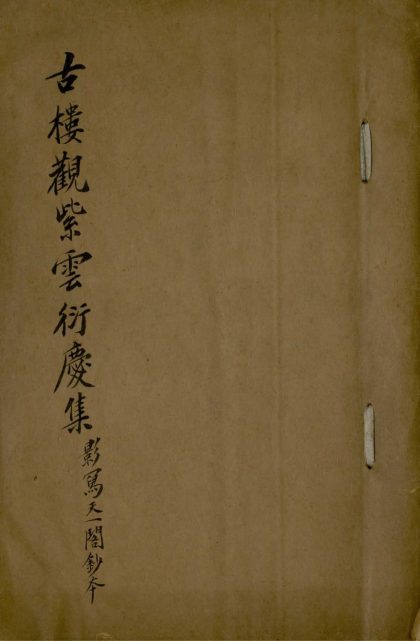 古樓觀紫雲衍慶集
影寫天一閣鈔本